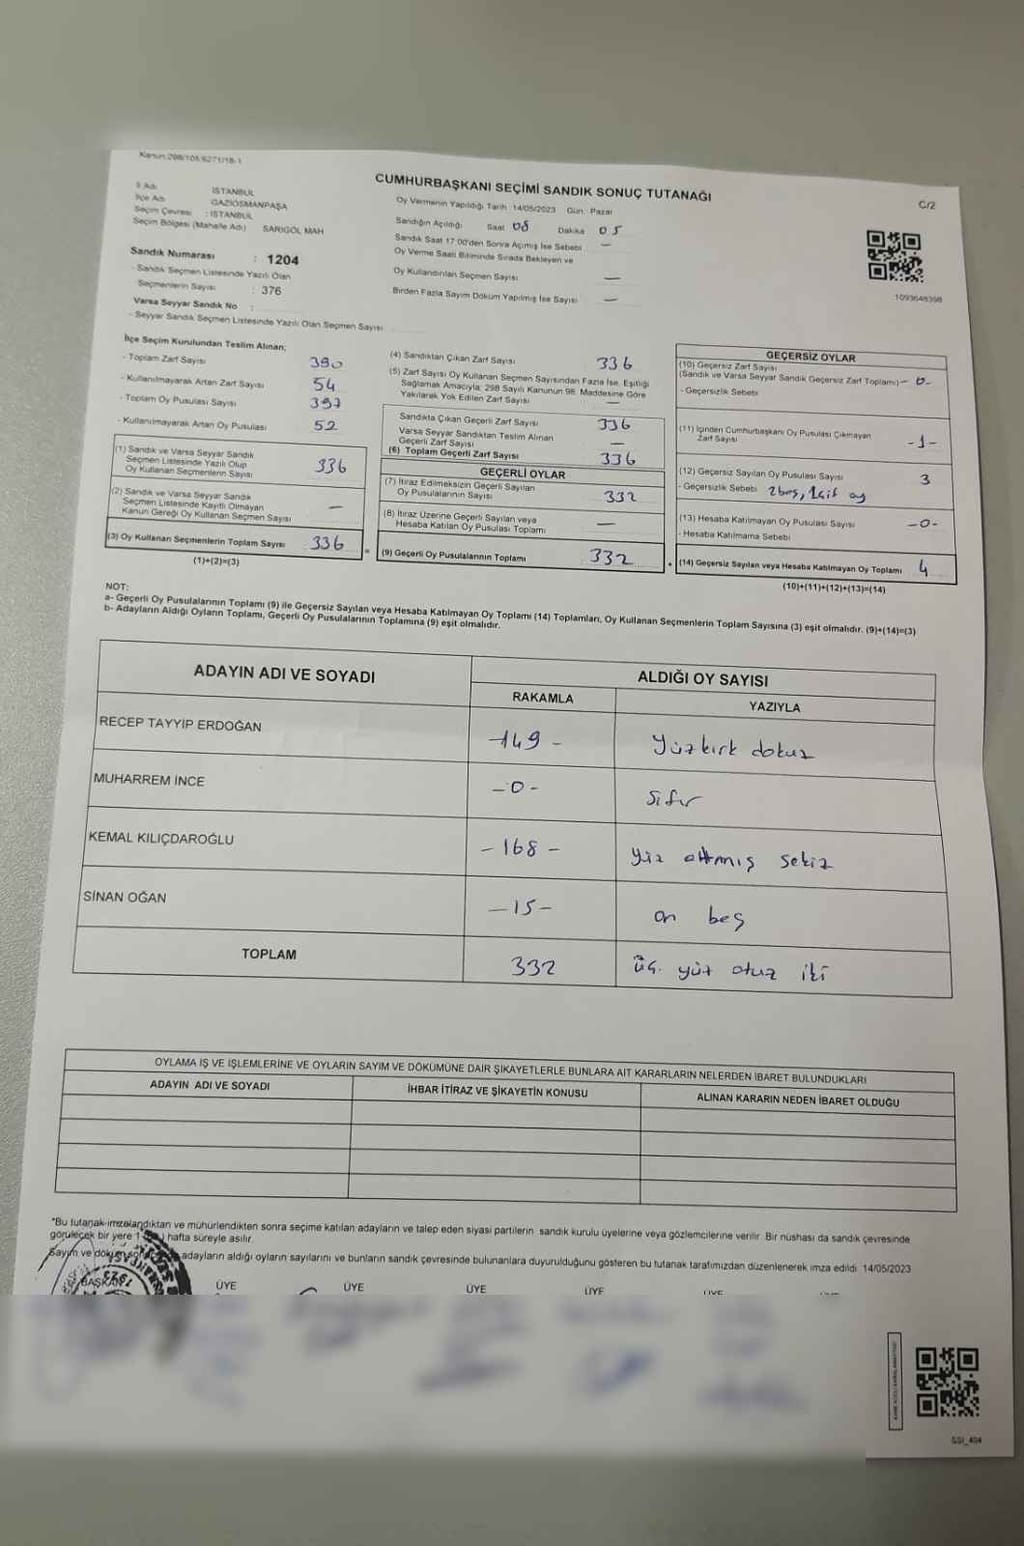 Kanun:298/105/6271/18-1
CUMHURBAŞKANI SEÇİMİ SANDIK SONUÇ TUTANAĞI
C/2
İl Adı : İSTANBUL
İlçe Adı : GAZİOSMANPAŞA
Seçim Çevresi : İSTANBUL
Seçim Bölgesi (Mahalle Adı) SARIGÖL MAH
Oy Vermenin Yapıldığı Tarih :14/05/2023 Gün : Pazar
Sandığın Açıldığı: Saat 08 Dakika 05
Sandık Saat 17:00'den Sonra Açmış İse Sebebi —
Oy Verme Saati Bitiminde Sırada Bekleyen ve
Oy Kullandırılan Seçmen Sayısı —
Birden Fazla Sayım Döküm Yapılmış İse Sayısı —
1093648398
Sandık Numarası : 1204
- Sandık Seçmen Listesinde Yazılı Olan
Seçmenlerin Sayısı : 376
Varsa Seyyar Sandık No :
- Seyyar Sandık Seçmen Listesinde Yazılı Olan Seçmen Sayısı
İlçe Seçim Kurulundan Teslim Alınan;
- Toplam Zarf Sayısı 390
- Kullanılmayarak Artan Zarf Sayısı 54
- Toplam Oy Pusulası Sayısı 397
- Kullanılmayarak Artan Oy Pusulası 52
(1) Sandık ve Varsa Seyyar Sandık
Seçmen Listesinde Yazılı Olup
Oy Kullanan Seçmenlerin Sayısı 336
(2) Sandık ve Varsa Seyyar Sandık
Seçmen Listesinde Kayıtlı Olmayan
Kanun Gereği Oy Kullanan Seçmen Sayısı —
(3) Oy Kullanan Seçmenlerin Toplam Sayısı 336
(1)+(2)=(3)
(4) Sandıktan Çıkan Zarf Sayısı 336
(5) Zarf Sayısı Oy Kullanan Seçmen Sayısından Fazla İse, Eşitliği
Sağlamak Amacıyla; 298 Sayılı Kanunun 98. Maddesine Göre
Yakılarak Yok Edilen Zarf Sayısı —
Sandıkta Çıkan Geçerli Zarf Sayısı 336
Varsa Seyyar Sandıktan Teslim Alınan
Geçerli Zarf Sayısı —
(6) Toplam Geçerli Zarf Sayısı 336
GEÇERLİ OYLAR
(7) İtiraz Edilmeksizin Geçerli Sayılan
Oy Pusulalarının Sayısı 332
(8) İtiraz Üzerine Geçerli Sayılan veya
Hesaba Katılan Oy Pusulası Toplamı —
= (9) Geçerli Oy Pusulalarının Toplamı 332
GEÇERSİZ OYLAR
(10) Geçersiz Zarf Sayısı
(Sandık ve Varsa Seyyar Sandık Geçersiz Zarf Toplamı) -0-
- Geçersizlik Sebebi
(11) İçinden Cumhurbaşkanı Oy Pusulası Çıkmayan
Zarf Sayısı -1-
(12) Geçersiz Sayılan Oy Pusulası Sayısı 3
- Geçersizlik Sebebi 2boş, 1çift oy
(13) Hesaba Katılmayan Oy Pusulası Sayısı -0-
- Hesaba Katılmama Sebebi
+ (14) Geçersiz Sayılan veya Hesaba Katılmayan Oy Toplamı 4
(10)+(11)+(12)+(13)=(14)
NOT:
a- Geçerli Oy Pusulalarının Toplamı (9) ile Geçersiz Sayılan veya Hesaba Katılmayan Oy Toplamı (14) Toplamları, Oy Kullanan Seçmenlerin Toplam Sayısına (3) eşit olmalıdır. (9)+(14)=(3)
b- Adayların Aldığı Oyların Toplamı, Geçerli Oy Pusulalarının Toplamına (9) eşit olmalıdır.
ADAYIN ADI VE SOYADI ALDIĞI OY SAYISI
RAKAMLA YAZIYLA
RECEP TAYYİP ERDOĞAN -149- Yüzkırk dokuz
MUHARREM İNCE -0- Sıfır
KEMAL KILIÇDAROĞLU -168- Yüz altmış sekiz
SİNAN OĞAN -15- on beş
TOPLAM 332 üç yüz otuz iki
OYLAMA İŞ VE İŞLEMLERİNE VE OYLARIN SAYIM VE DÖKÜMÜNE DAİR ŞİKAYETLERLE BUNLARA AİT KARARLARIN NELERDEN İBARET BULUNDUKLARI
ADAYIN ADI VE SOYADI İHBAR İTİRAZ VE ŞİKAYETİN KONUSU ALINAN KARARIN NEDEN İBARET OLDUĞU
*Bu tutanak imzalandıktan ve mühürlendikten sonra seçime katılan adayların ve talep eden siyasi partilerin sandık kurulu üyelerine veya gözlemcilerine verilir. Bir nüshası da sandık çevresinde
görülecek bir yere 1 hafta süreyle asılır.
Sayım ve döküm adayların aldığı oyların sayılarını ve bunların sandık çevresinde bulunanlara duyurulduğunu gösteren bu tutanak tarafımızdan düzenlenerek imza edildi. 14/05/2023
BAŞKAN ÜYE ÜYE ÜYE ÜYE ÜYE
SSI_404